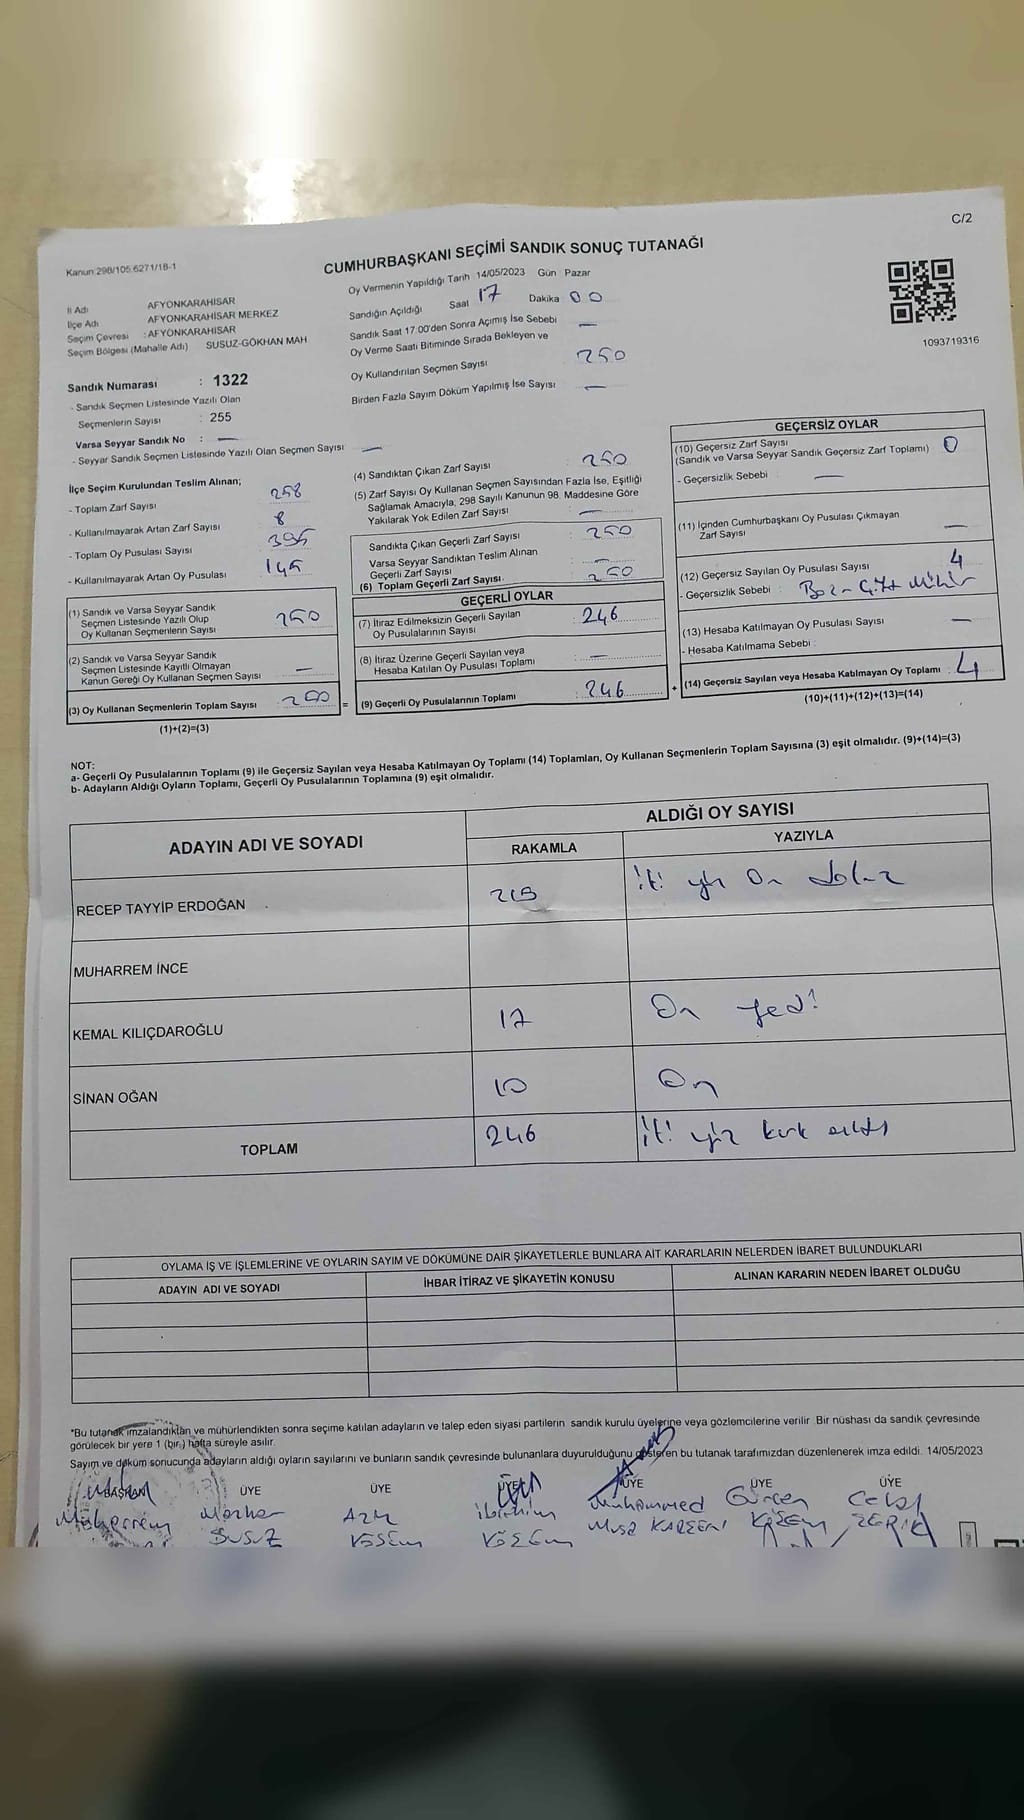 C/2
Kanun 298/105 6271/18-1
CUMHURBAŞKANI SEÇİMİ SANDIK SONUÇ TUTANAĞI
İl Adı AFYONKARAHİSAR
İlçe Adı AFYONKARAHİSAR MERKEZ
Seçim Çevresi : AFYONKARAHİSAR
Seçim Bölgesi (Mahalle Adı) SUSUZ-GÖKHAN MAH
Oy Vermenin Yapıldığı Tarih 14/05/2023 Gün Pazar
Sandığın Açıldığı Saat 17 Dakika 00
Sandık Saat 17:00'den Sonra Açımış İse Sebebi —
Oy Verme Saati Bitiminde Sırada Bekleyen ve
Oy Kullandırılan Seçmen Sayısı 250
Birden Fazla Sayım Döküm Yapılmış İse Sayısı —
1093719316
Sandık Numarası : 1322
- Sandık Seçmen Listesinde Yazılı Olan
Seçmenlerin Sayısı : 255
Varsa Seyyar Sandık No : —
- Seyyar Sandık Seçmen Listesinde Yazılı Olan Seçmen Sayısı —
İlçe Seçim Kurulundan Teslim Alınan;
- Toplam Zarf Sayısı 258
- Kullanılmayarak Artan Zarf Sayısı 8
- Toplam Oy Pusulası Sayısı 395
- Kullanılmayarak Artan Oy Pusulası 145
(1) Sandık ve Varsa Seyyar Sandık
Seçmen Listesinde Yazılı Olup
Oy Kullanan Seçmenlerin Sayısı : 250
(2) Sandık ve Varsa Seyyar Sandık
Seçmen Listesinde Kayıtlı Olmayan
Kanun Gereği Oy Kullanan Seçmen Sayısı —
(3) Oy Kullanan Seçmenlerin Toplam Sayısı : 250 =
(1)+(2)=(3)
(4) Sandıktan Çıkan Zarf Sayısı : 250
(5) Zarf Sayısı Oy Kullanan Seçmen Sayısından Fazla İse, Eşitliği
Sağlamak Amacıyla, 298 Sayılı Kanunun 98. Maddesine Göre
Yakılarak Yok Edilen Zarf Sayısı : —
Sandıkta Çıkan Geçerli Zarf Sayısı : 250
Varsa Seyyar Sandıktan Teslim Alınan
Geçerli Zarf Sayısı : —
(6) Toplam Geçerli Zarf Sayısı : 250
GEÇERLİ OYLAR
(7) İtiraz Edilmeksizin Geçerli Sayılan
Oy Pusulalarının Sayısı : 246
(8) İtiraz Üzerine Geçerli Sayılan veya
Hesaba Katılan Oy Pusulası Toplamı : —
(9) Geçerli Oy Pusulalarının Toplamı : 246 +
GEÇERSİZ OYLAR
(10) Geçersiz Zarf Sayısı
(Sandık ve Varsa Seyyar Sandık Geçersiz Zarf Toplamı) : 0
- Geçersizlik Sebebi : —
(11) İçinden Cumhurbaşkanı Oy Pusulası Çıkmayan
Zarf Sayısı : —
(12) Geçersiz Sayılan Oy Pusulası Sayısı : 4
- Geçersizlik Sebebi : Çift Mühür
(13) Hesaba Katılmayan Oy Pusulası Sayısı : —
- Hesaba Katılmama Sebebi :
(14) Geçersiz Sayılan veya Hesaba Katılmayan Oy Toplamı : 4
(10)+(11)+(12)+(13)=(14)
NOT:
a- Geçerli Oy Pusulalarının Toplamı (9) ile Geçersiz Sayılan veya Hesaba Katılmayan Oy Toplamı (14) Toplamları, Oy Kullanan Seçmenlerin Toplam Sayısına (3) eşit olmalıdır. (9)+(14)=(3)
b- Adayların Aldığı Oyların Toplamı, Geçerli Oy Pusulalarının Toplamına (9) eşit olmalıdır.
ADAYIN ADI VE SOYADI ALDIĞI OY SAYISI
RAKAMLA YAZIYLA
RECEP TAYYİP ERDOĞAN 219 iki yüz On dokuz
MUHARREM İNCE
KEMAL KILIÇDAROĞLU 17 On yedi
SİNAN OĞAN 10 On
TOPLAM 246 iki yüz kırk altı
OYLAMA İŞ VE İŞLEMLERİNE VE OYLARIN SAYIM VE DÖKÜMÜNE DAİR ŞİKAYETLERLE BUNLARA AİT KARARLARIN NELERDEN İBARET BULUNDUKLARI
ADAYIN ADI VE SOYADI İHBAR İTİRAZ VE ŞİKAYETİN KONUSU ALINAN KARARIN NEDEN İBARET OLDUĞU
*Bu tutanak imzalandıktan ve mühürlendikten sonra seçime katılan adayların ve talep eden siyasi partilerin sandık kurulu üyelerine veya gözlemcilerine verilir Bir nüshası da sandık çevresinde
görülecek bir yere 1 (bir) hafta süreyle asılır.
Sayım ve döküm sonucunda adayların aldığı oyların sayılarını ve bunların sandık çevresinde bulunanlara duyurulduğunu gösteren bu tutanak tarafımızdan düzenlenerek imza edildi. 14/05/2023
BAŞKAN ÜYE ÜYE ÜYE ÜYE ÜYE ÜYE
Muharrem Mazhar Aziz İbrahim Muhammed Gürcan Celal
SUSUZ KÖSEM KÖSEM Musa KÖSEM